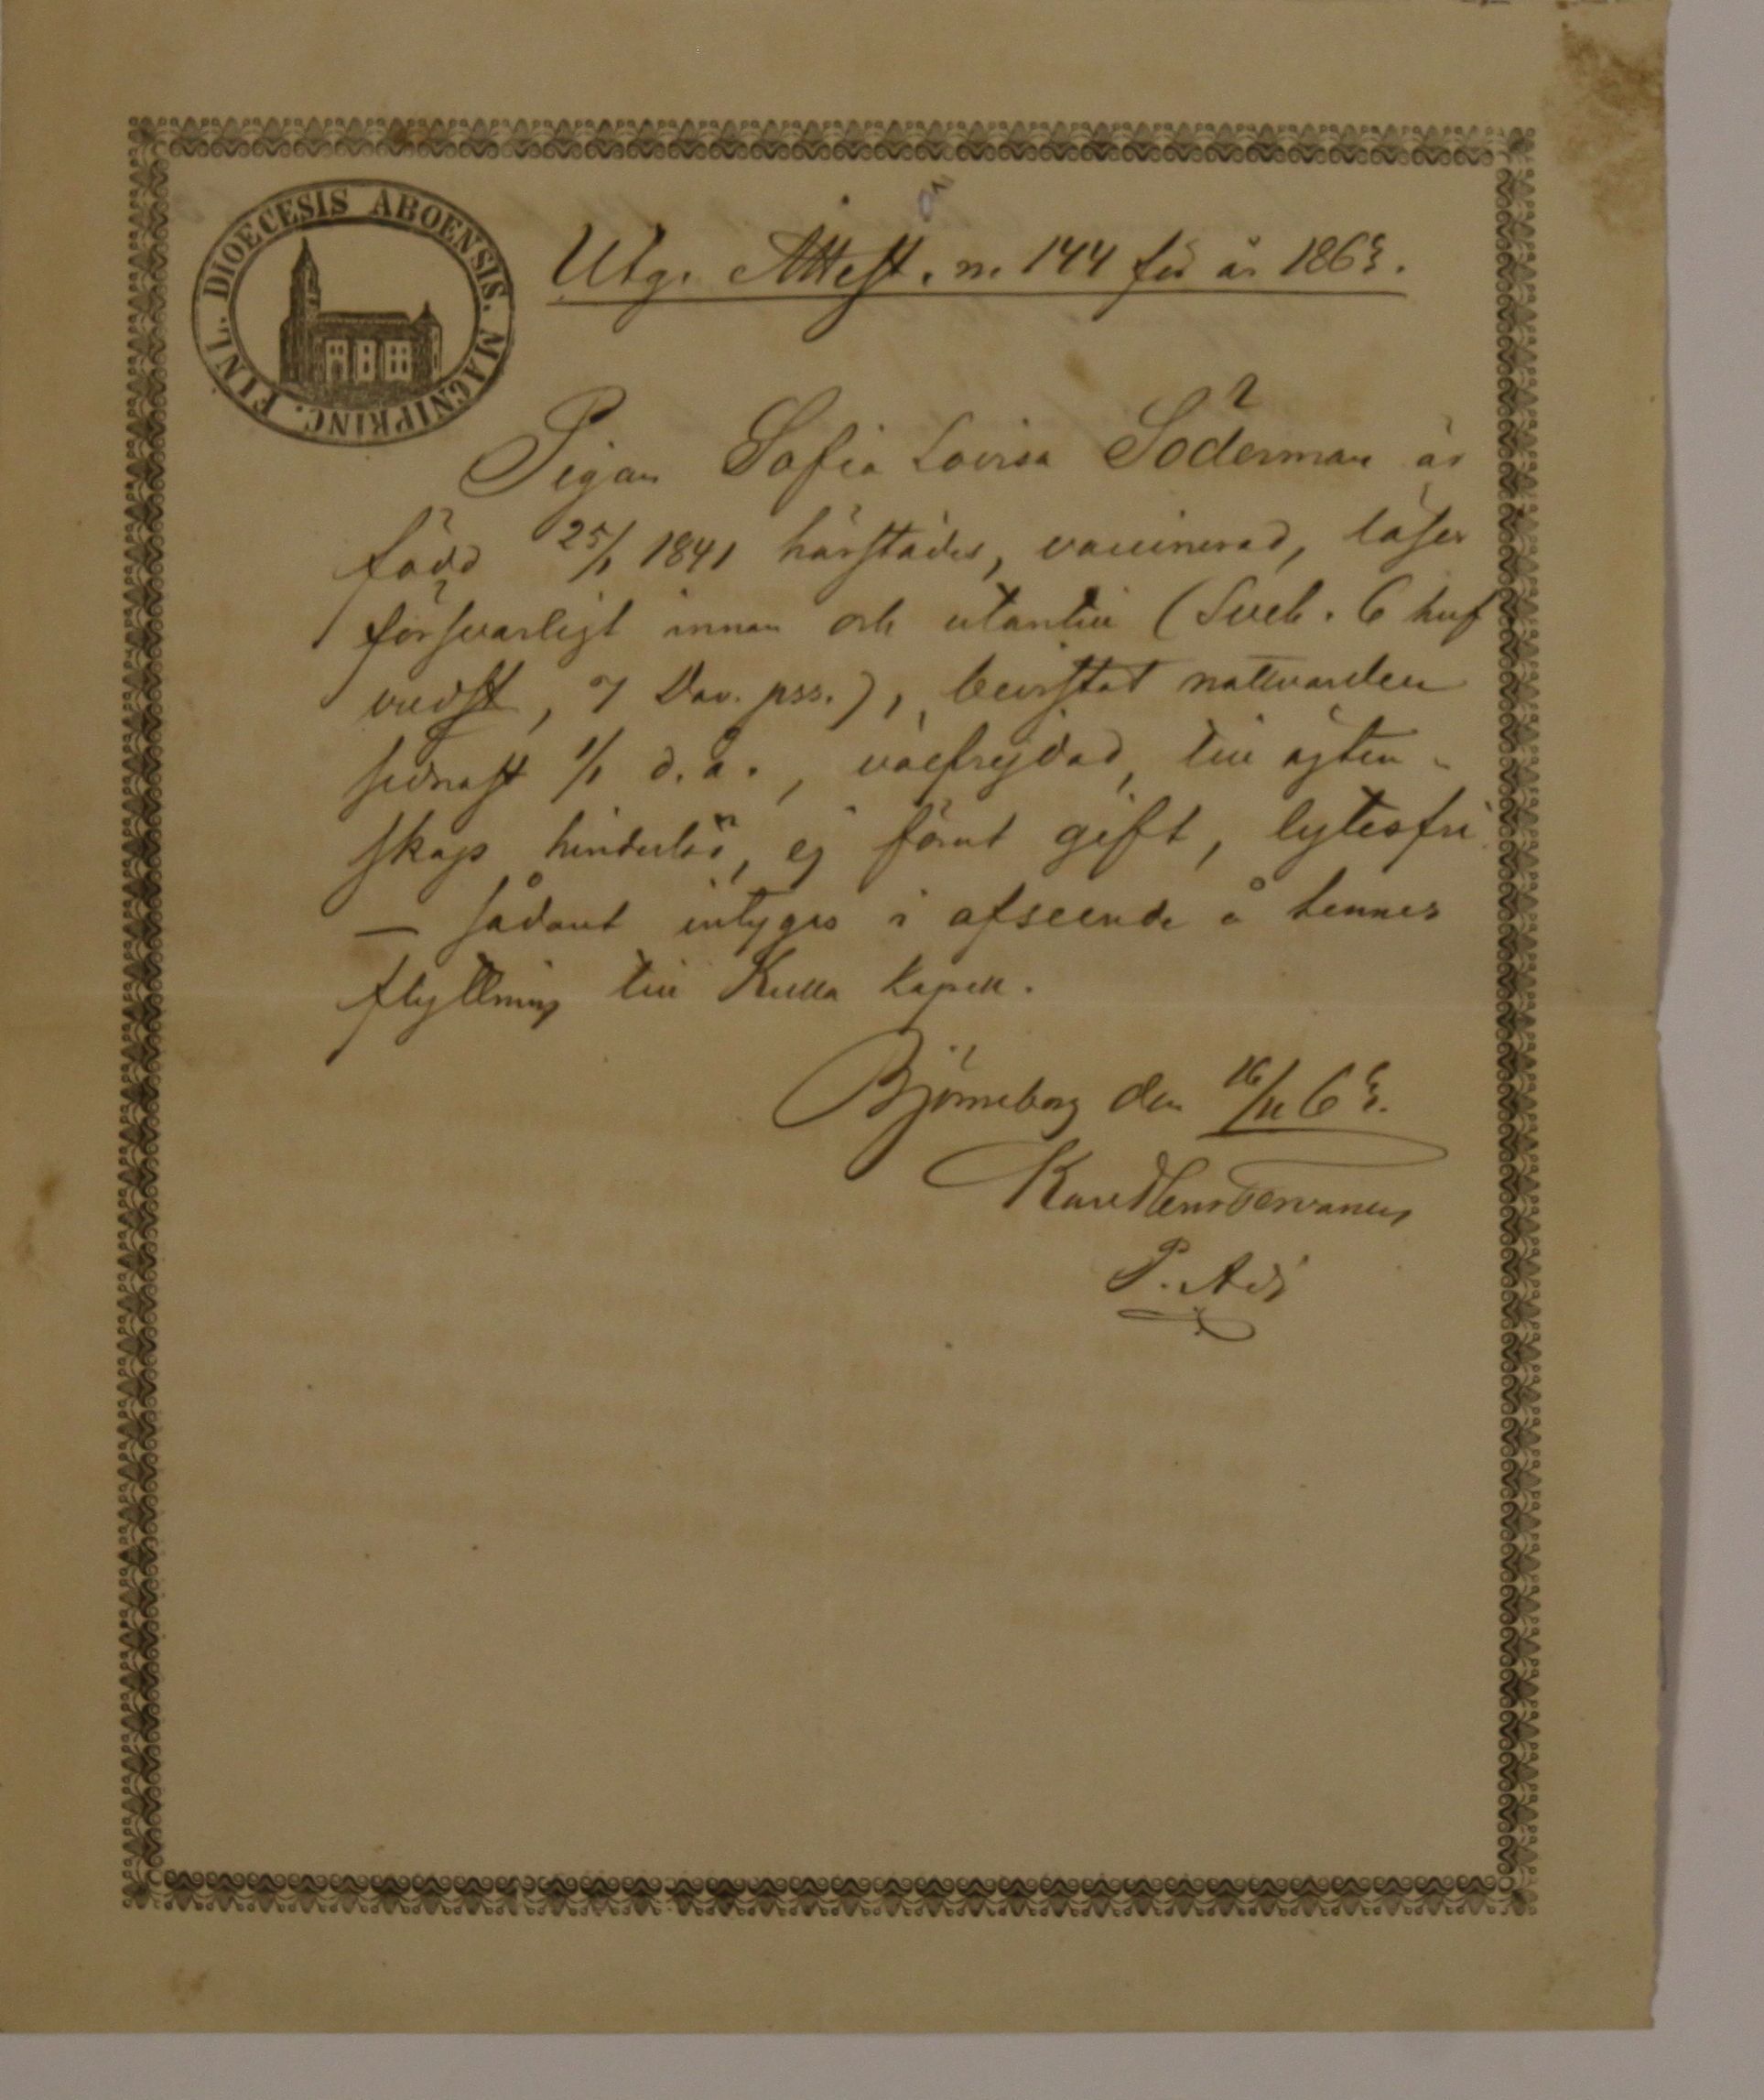 DIOECESIS ABOENSIS. MAGNIPRINC. FINL.
Utg. Attest. n. 144 för år 1863.
Pigan Sofia Lovisa Söderman är
född 25/1 1841 härstädes, vaccinerad, läser
försvarligt innan och utantill (Sveb. 6 huf
vudst, 7 Dav. pss.), bevistat nattvarden
sednast 1/1 d. å., välfrejdad, till ägten-
skap hinderlös, ej förut gift, lytesfri
— sådant intygas i afseende å hennes
flyttning till Kulla kapell.
Björneborg den 16/11 63.
Karl Henr
P. Adj